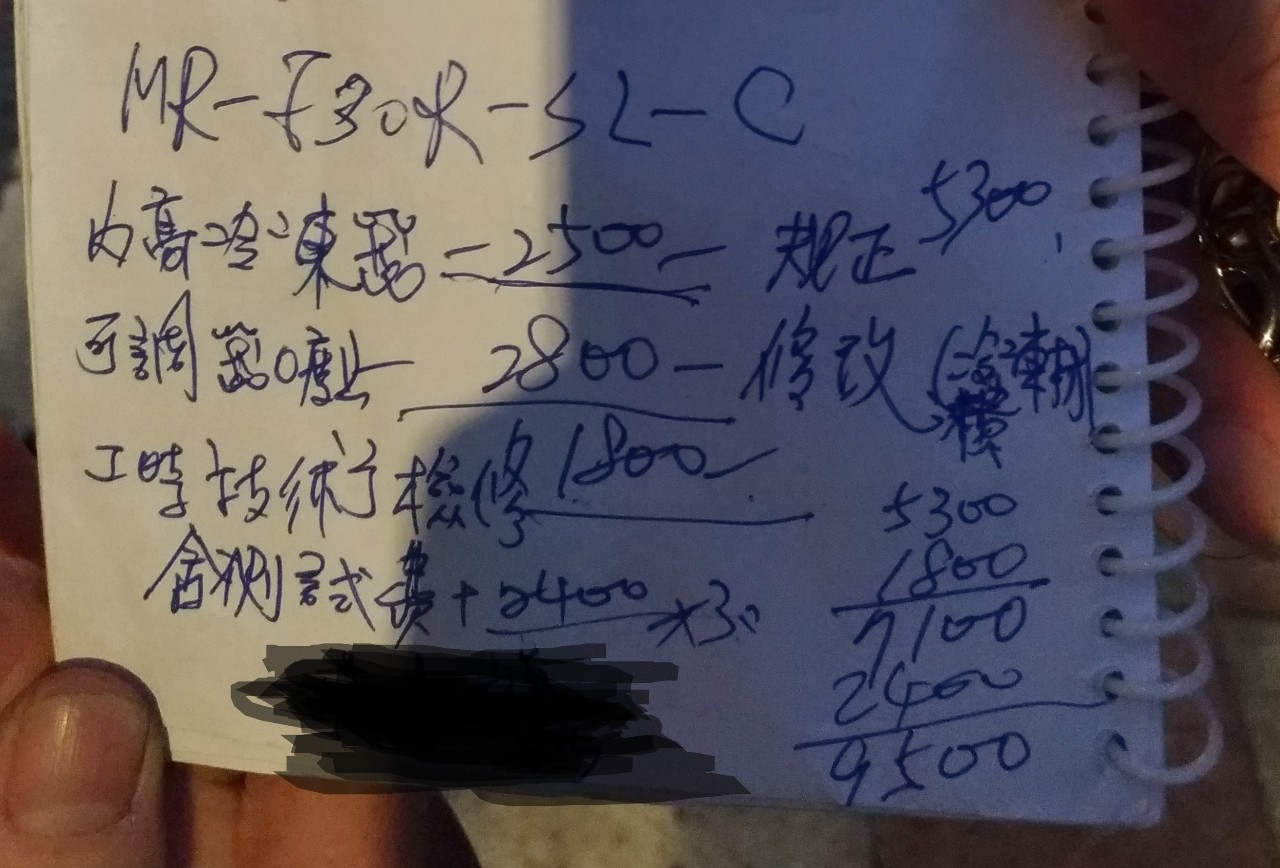 MR-F30R-SL-C
內高冷凍器=2500- 規正 5300
可調 2800-修改(冷凍
工時技術檢修 1800
含測試費+2400 ×30
5300
1800
7100
2400
9500